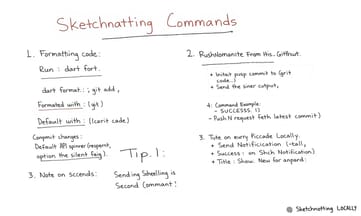 Sketchnatting Commands
1. Formatting code:
Run : dart fort.
dart format: ; git add,
Formated with : (git)
Default with : (lcarit cade)
Conpmit changes:
Default API spinner (respont,
option the silent faig).
3. Note on sccends:
Tip. 1 :
Sending Sheelling is
Second (ommant!
2. Rushslomanite From His. Giffnut.
+ Initait pusp commit to (grit
code..)
+ Send the siner output,
4: Command Example:
- SUCCESSS. 1)
- Push N request feth latest commit)
3. Tute on every Piccade Locally.
+ Send Notificiication (-tall,
+ Success : on Shch Notification)
+ Title : Show. New for anpard:
Sketchnotting LOCALLY